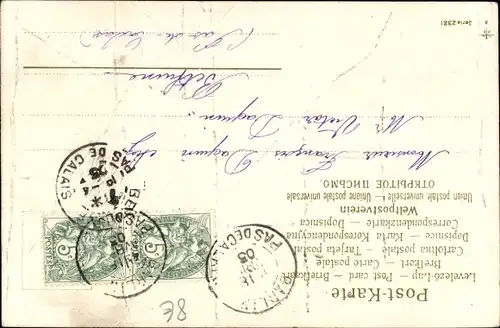 Post-Karte
Levelező-Lap — Post card — Briefkaart
Brefkort — Carte postale
Cartolina postale — Tarjeta postal
Dopisnice — Karta Korrespondencyjna
Correspondenzkarte — Dopisnica
Weltpostverein
Union postale universelle Unione postale universale
ОТКРЫТОЕ ПИСЬМО
Monsieur François Daquin chez
Mr Victor Daquin
Béthune
(Pas de Calais)
Serie 2321
PAS DE CALAIS
PAS DE CALAIS
05
5
5
POSTES
8E